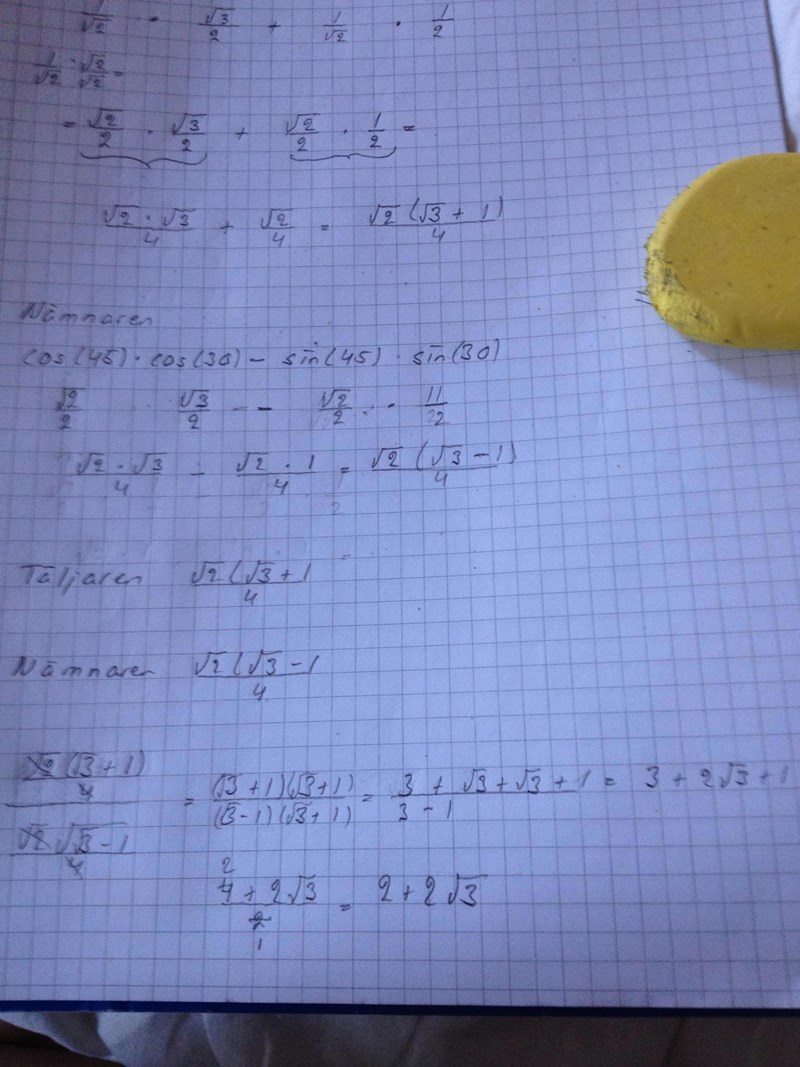 1/√2 · √3/2 + 1/√2 · 1/2
1/√2 · √2/√2 =
= √2/2 · √3/2 + √2/2 · 1/2 =
√2 · √3/4 + √2/4 = √2(√3 + 1)/4
Nämnaren
cos(45) · cos(30) - sin(45) · sin(30)
√2/2 √3/2 - - √2/2 · · 11/2
√2 · √3/4 - √2 · 1/4 = √2(√3 - 1)/4
Täljaren √2(√3 + 1/4
Nämnaren √2(√3 - 1/4
√2(√3 + 1)/4 / √2√√3 - 1/4 = (√3 + 1)(√3 + 1)/(√3 - 1)(√3 + 1) = 3 + √3 + √3 + 1/3 - 1 = 3 + 2√3 + 1
2
4 + 2√3/2 = 2 + 2√3
1